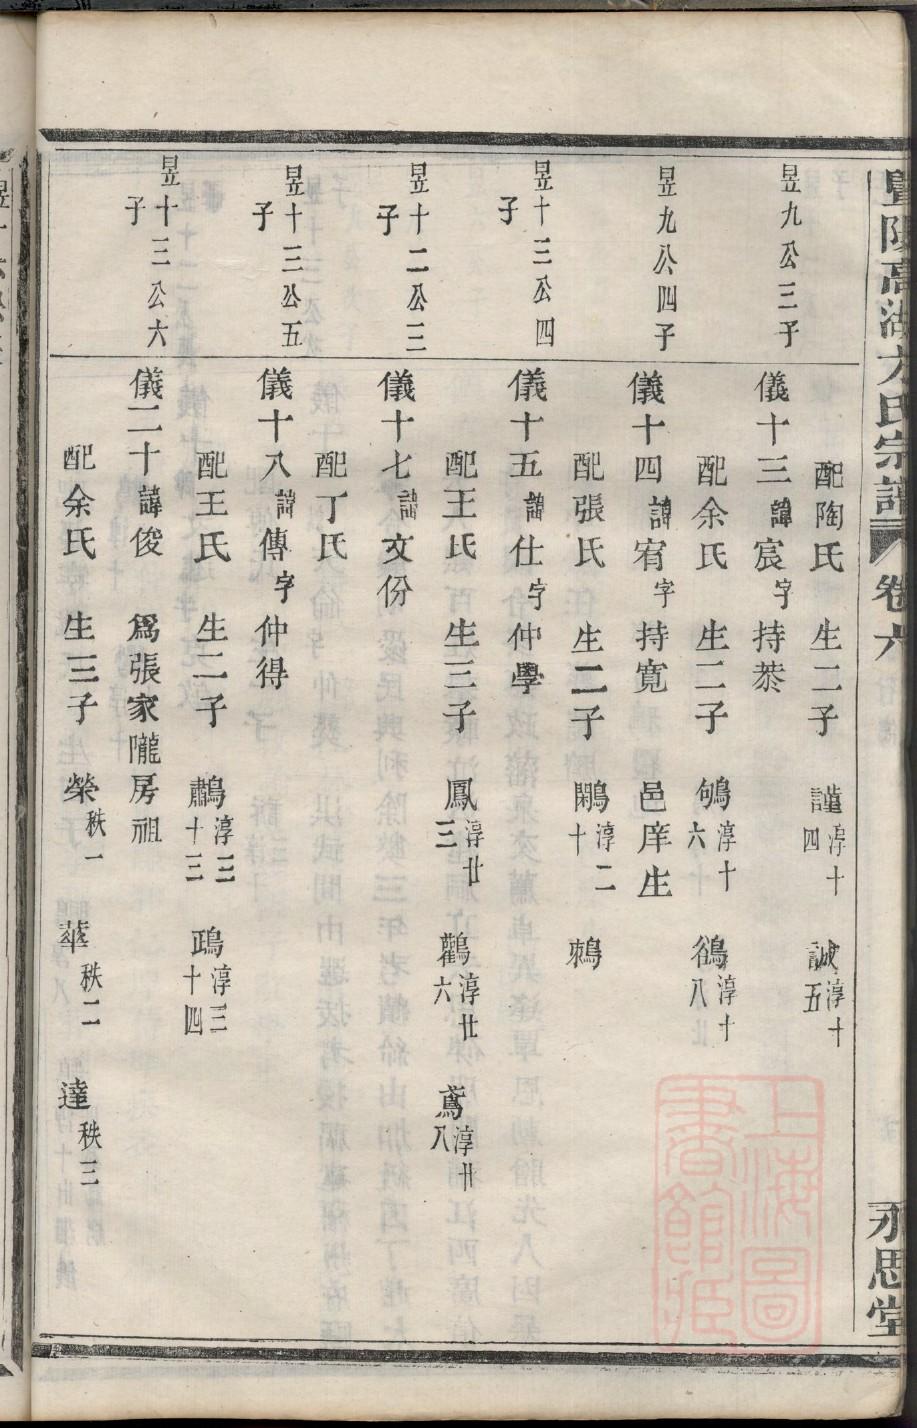 暨陽高湖方氏宗譜 卷六 永思堂
配陶氏 生二子 謹淳十四 誠淳十五
昱九公三子
儀十三諱宸字持恭
配余氏 生二子 鴝淳十六 鵒淳十八
昱九公四子
儀十四諱宥字持寬 邑庠生
配張氏 生二子 鷴淳二十 鶇
昱十三公四子
儀十五諱仕字仲學
配王氏 生三子 鳳淳廿三 鸛淳廿六 鳶淳廿八
昱十二公三子
儀十七諱文份
配丁氏
昱十三公五子
儀十八諱傳字仲得
配王氏 生二子 鷫淳三十三 鵡淳三十四
昱十三公六子
儀二十諱俊 爲張家隴房祖
配余氏 生三子 榮秩一 華秩二 達秩三
上海圖書館藏